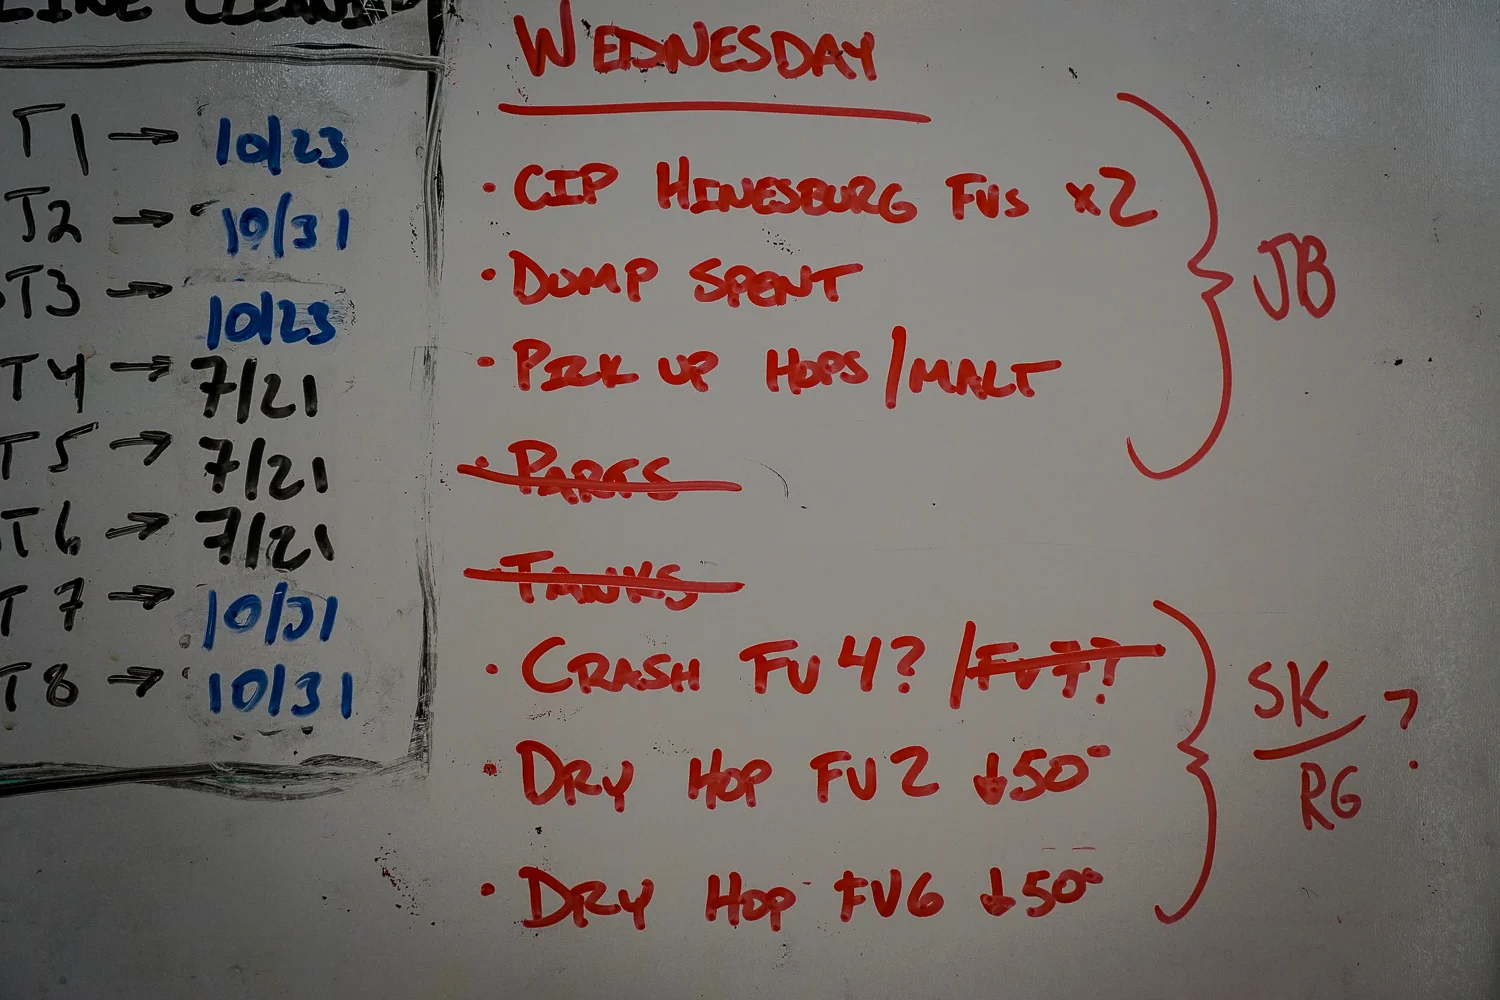 LINE CLEANED
T1 → 10/23
T2 → 10/31
T3 → 10/23
T4 → 7/21
T5 → 7/21
T6 → 7/21
T7 → 10/31
T8 → 10/31
WEDNESDAY
• CIP HINESBURG FVs x2
• DUMP SPENT
• PICK UP HOPS/MALT
JB
• PARTS
• TANKS
• CRASH FV4? /FV7?
• DRY HOP FV2 ↓50°
• DRY HOP FV6 ↓50°
SK/RG ?